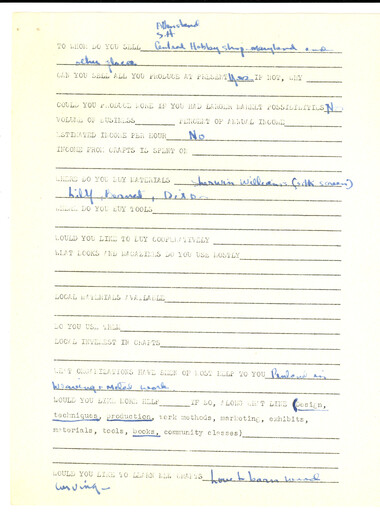 S.A
TO WHOM DO YOU SELL Central Hobby Shop, Maryland and
other places
CAN YOU SELL ALL YOU PRODUCE AT PRESENT Yes IF NOT, WHY
COULD YOU PRODUCE MORE IF YOU HAD LARGER MARKET POSSIBILITIES No
VOLUME OF BUSINESS PERCENT OF ANNUAL INCOME
ESTIMATED INCOME PER HOUR No
INCOME FROM CRAFTS IS SPENT ON
WHERE DO YOU BUY MATERIALS Sherwin Williams (silk screen)
Lily
WHERE DO YOU BUY TOOLS
WOULD YOU LIKE TO BUY COOPERATIVELY
WHAT BOOKS AND MAGAZINES DO YOU USE MOSTLY
LOCAL MATERIALS AVAILABLE
DO YOU USE THEM
LOCAL INTEREST IN CRAFTS
WHAT ORGANIZATIONS HAVE BEEN OF MOST HELP TO YOU Penland in
Weaving & Metal work
WOULD YOU LIKE MORE HELP IF SO, ALONG WHAT LINE (Design,
techniques, production, work methods, marketing, exhibits,
materials, tools, books, community classes)
WOULD YOU LIKE TO LEARN NEW CRAFTS Love to learn wood
carving